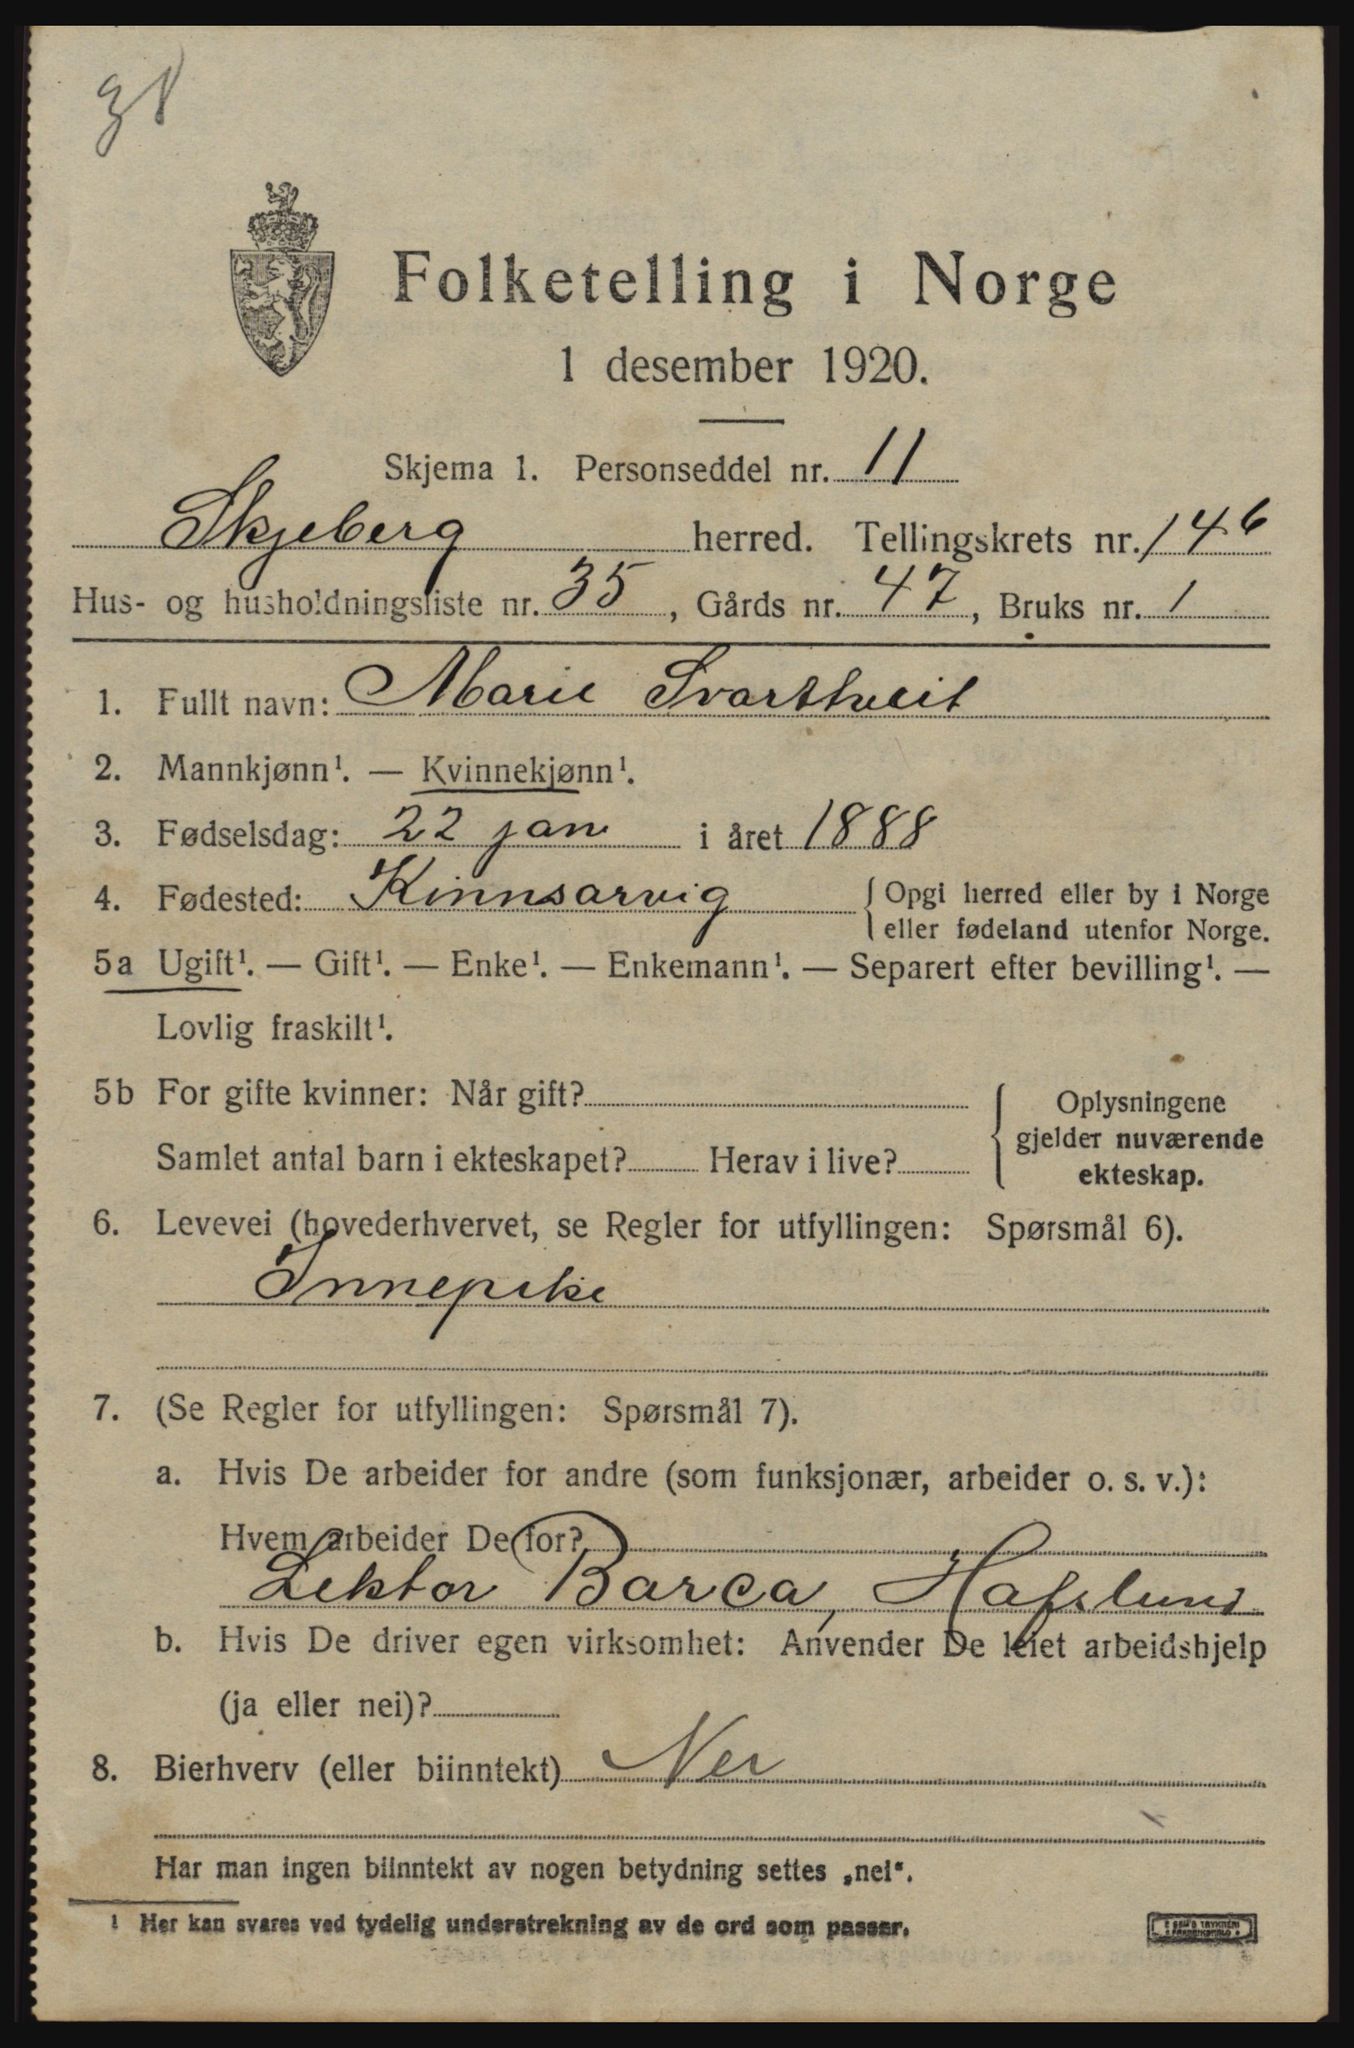 38
Folketelling i Norge
1 desember 1920.
Skjema 1. Personseddel nr. 11
Skjeberg herred. Tellingskrets nr. 14 b
Hus- og husholdningsliste nr. 35, Gårds nr. 47, Bruks nr. 1
1. Fullt navn: Marie Svarthveit
2. Mannkjønn¹. — Kvinnekjønn¹.
3. Fødselsdag: 22 jan i året 1888
4. Fødested: Kinnsarvig { Opgi herred eller by i Norge
eller fødeland utenfor Norge.
5a Ugift¹. — Gift¹. — Enke¹. — Enkemann¹. — Separert efter bevilling¹. —
Lovlig fraskilt¹.
5b For gifte kvinner: Når gift? { Oplysningene
gjelder nuværende
Samlet antal barn i ekteskapet? Herav i live? ekteskap.
6. Levevei (hovederhvervet, se Regler for utfyllingen: Spørsmål 6).
Innepike
7. (Se Regler for utfyllingen: Spørsmål 7).
a. Hvis De arbeider for andre (som funksjonær, arbeider o. s. v.):
Hvem arbeider De for?
Lektor Barca, Hafslund
b. Hvis De driver egen virksomhet: Anvender De leiet arbeidshjelp
(ja eller nei)?
8. Bierhverv (eller biinntekt) Nei
Har man ingen biinntekt av nogen betydning settes „nei“.
1 Her kan svares ved tydelig understrekning av de ord som passer.